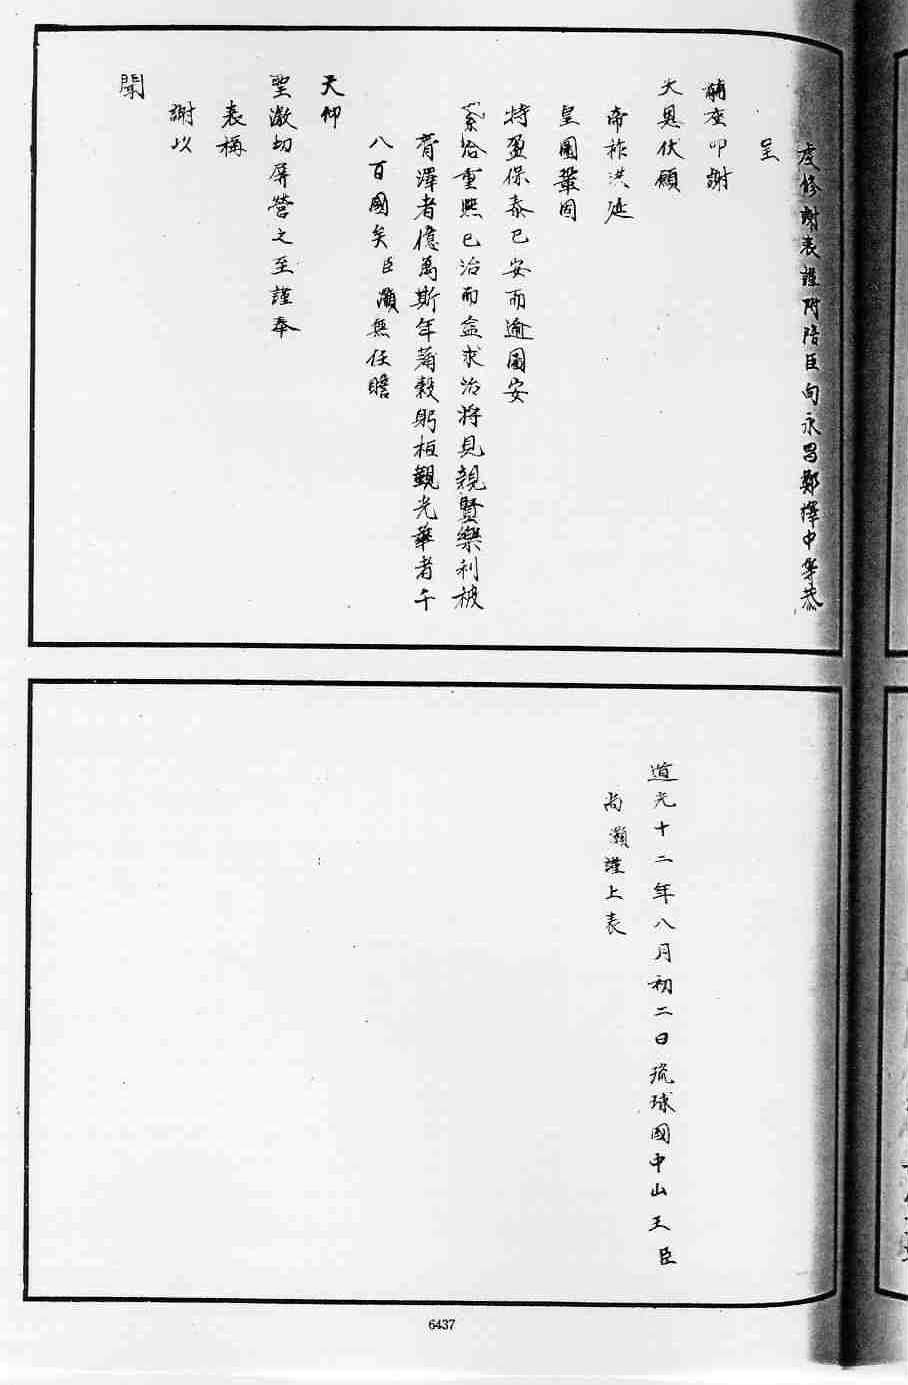 虔修謝表謹附陪臣向永昌鄭擇中等恭
呈
黼座叩謝
天恩伏願
帝祚洪延
皇圖鞏固
持盈保泰已安而逾圖安
累洽重熙已治而益求治將見親賢樂利被
膏澤者億萬斯年蒲穀躬桓觀光華者千
八百國矣臣灝無任瞻
天仰
聖激切屏營之至謹奉
表稱
謝以
聞
道光十二年八月初二日琉球國中山王臣
尚灝謹上表
6437